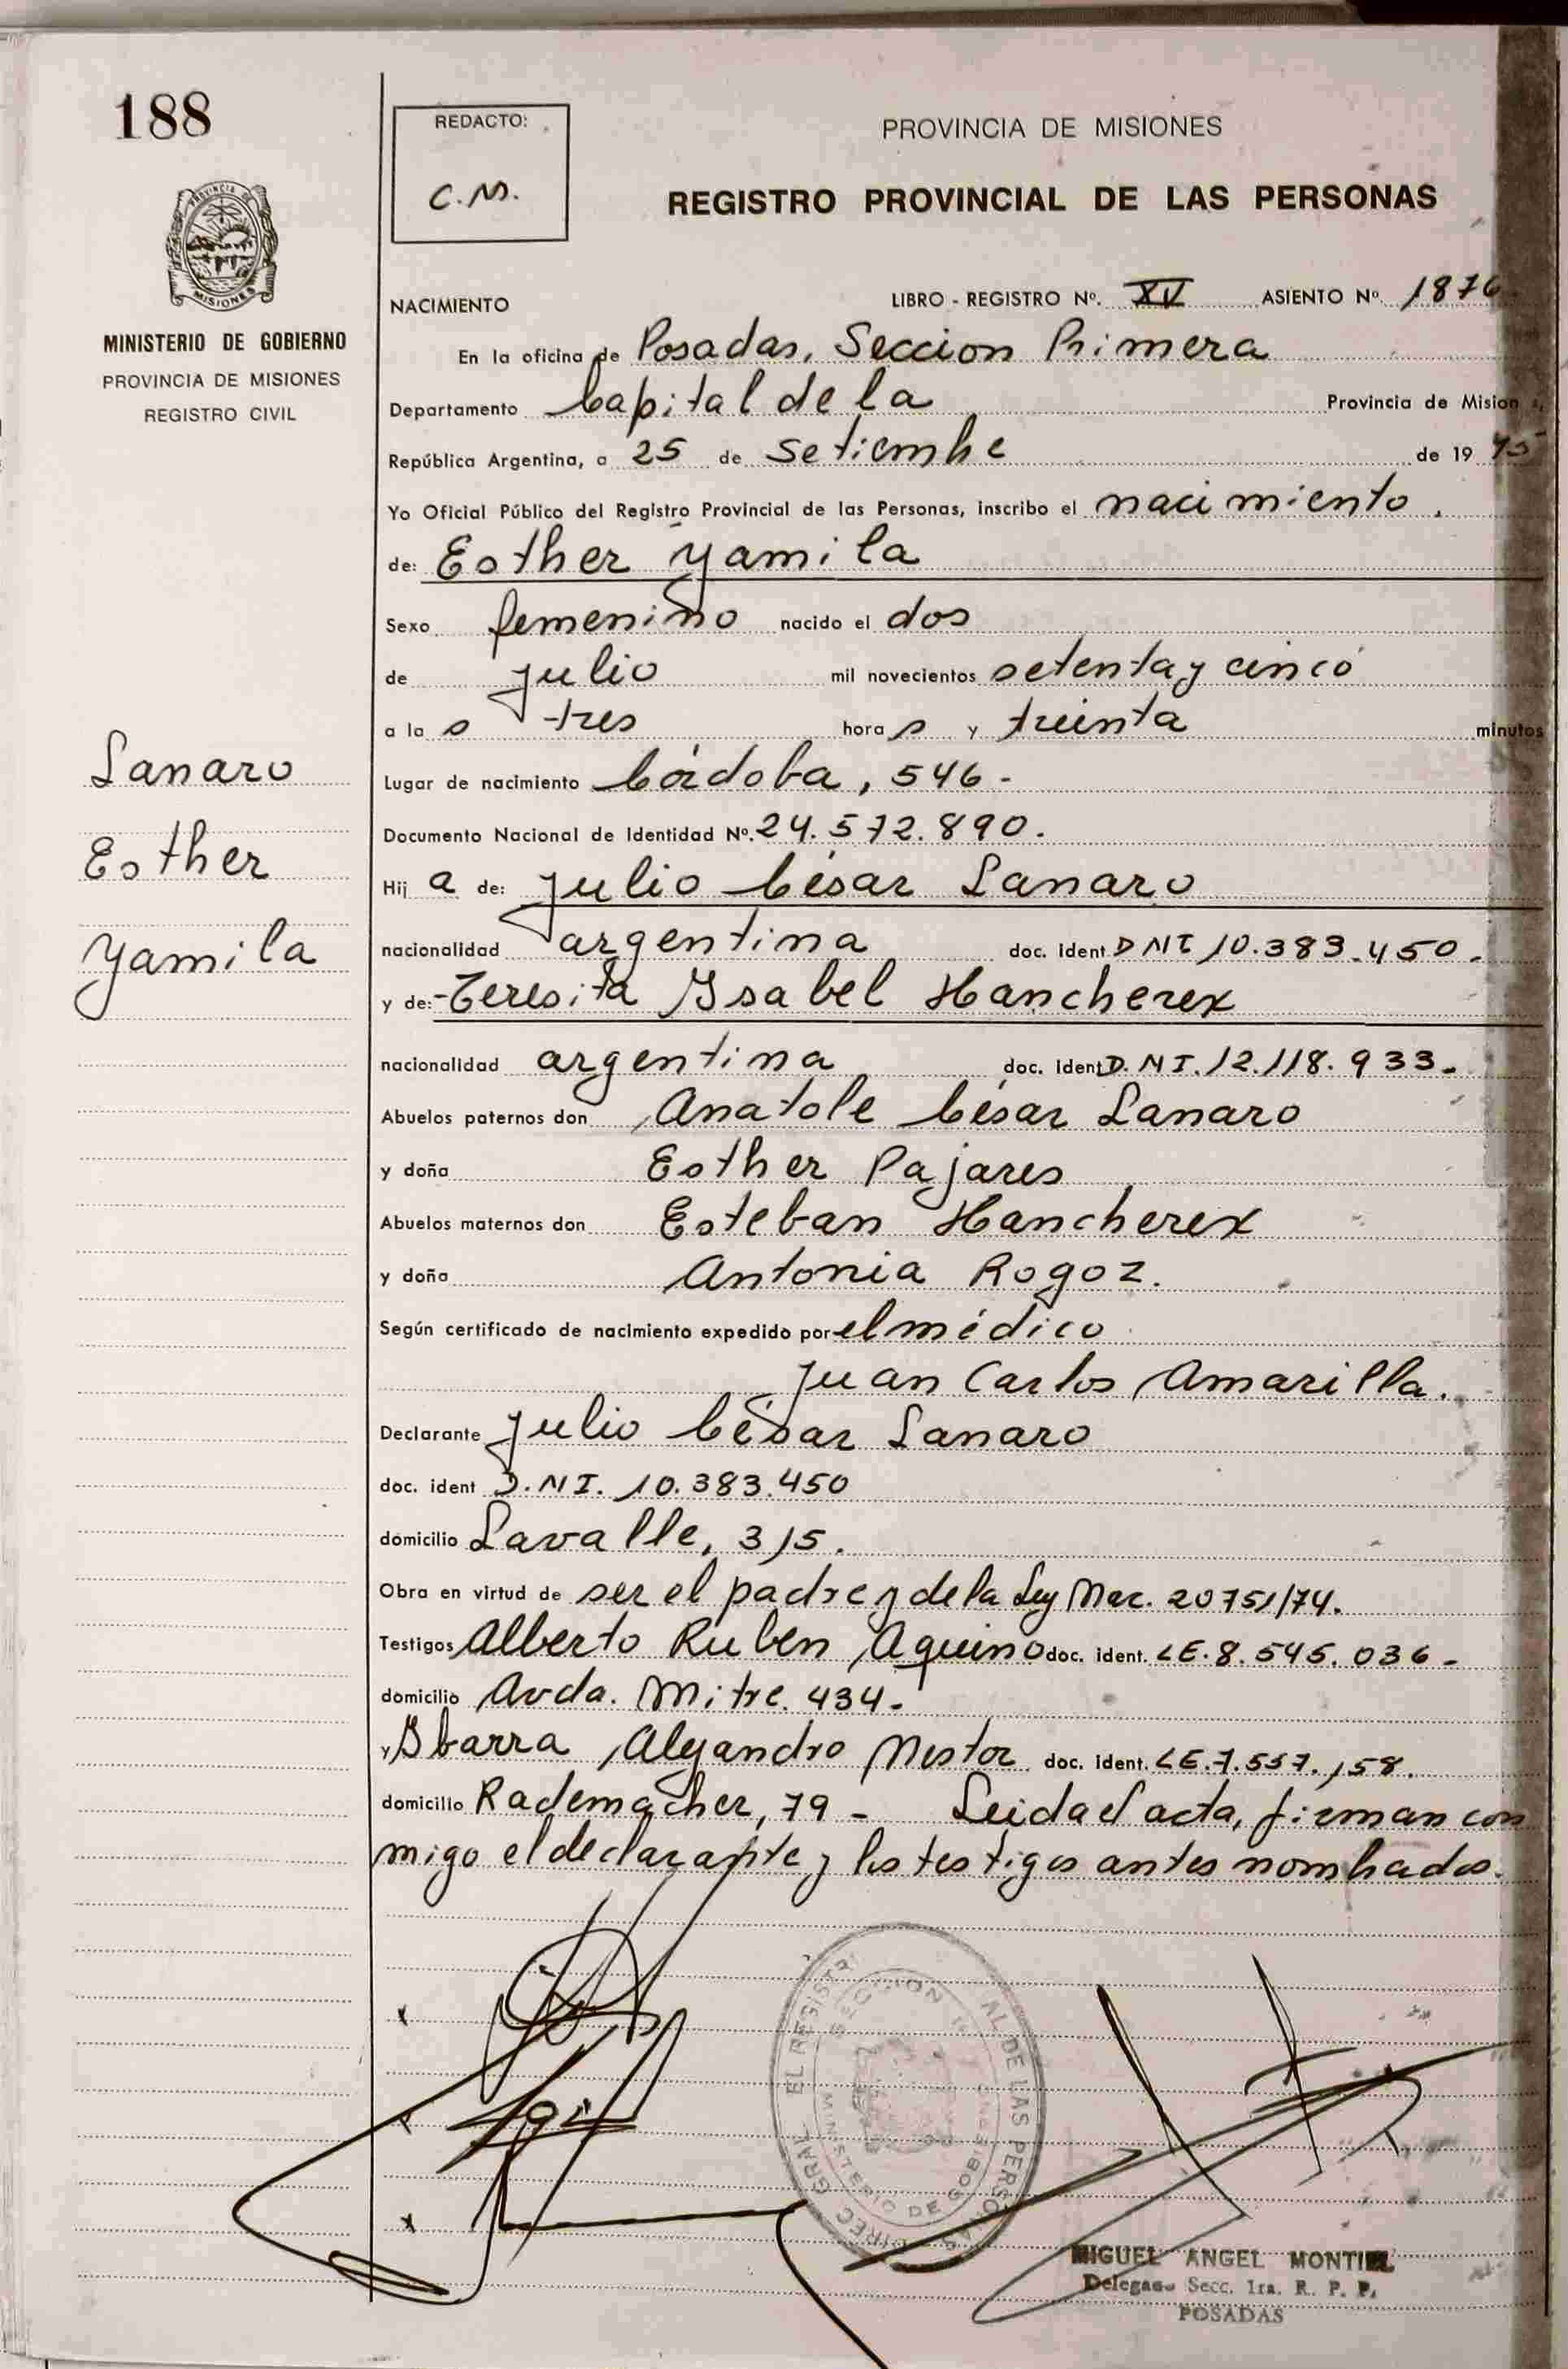 188
REDACTO:
C.M.
PROVINCIA DE MISIONES
REGISTRO PROVINCIAL DE LAS PERSONAS
PROVINCIA
MISIONES
MINISTERIO DE GOBIERNO
PROVINCIA DE MISIONES
REGISTRO CIVIL
NACIMIENTO LIBRO - REGISTRO Nº. XV ASIENTO Nº 1876
En la oficina de Posadas, Seccion Primera
Departamento Capital de la Provincia de Misiones,
República Argentina, a 25 de Setiembre de 19 75
Yo Oficial Público del Registro Provincial de las Personas, inscribo el nacimiento.
de: Esther Yamila
Sexo femenino nacido el dos
de julio mil novecientos setenta y cinco
a la s tres hora s y treinta minutos
Lugar de nacimiento Córdoba, 546 -
Documento Nacional de Identidad Nº. 24.572.890.
Hij a de: Julio César Lanaro
nacionalidad argentina doc. ident DNI 10.383.450.
y de: Teresita Ysabel Hancherex
nacionalidad argentina doc. ident D.NI.12.118.933-
Abuelos paternos don Anatole César Lanaro
y doña Esther Pajares
Abuelos maternos don Esteban Hancherex
y doña Antonia Rogoz.
Según certificado de nacimiento expedido por el médico
Juan Carlos Amarilla.
Declarante Julio César Lanaro
doc. ident D.NI. 10.383.450
domicilio Lavalle, 315.
Obra en virtud de ser el padre y de la Ley Nac. 20751/74.
Testigos Alberto Ruben Aquino doc. ident. LE.8.545.036-
domicilio Avda. Mitre. 434-
y Ybarra Alejandro Nestor doc. ident. LE.7.557.158.
domicilio Rademacher, 79 - Leida el acta, firman con
migo el declarante y los testigos antes nombrados.
Lanaro
Esther
Yamila
DIREC GRAL EL REGISTR AL DE LAS PERSONAS
SECCION 1ª
MINISTERIO DE GOBI
MIGUEL ANGEL MONTIEL
Delegado Secc. 1ra. R. P. P.
POSADAS